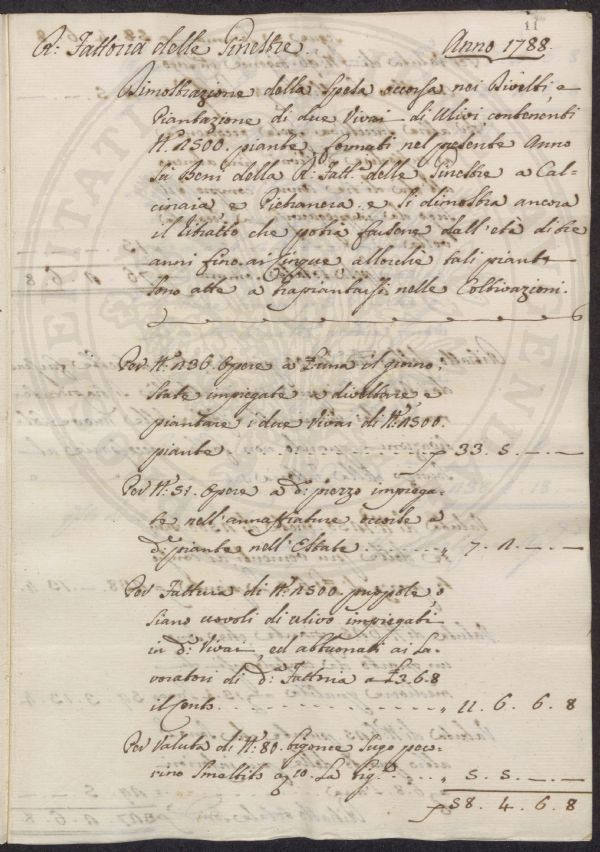 11
R: Fattoria delle Ginestre. Anno 1788.
Dimostrazione della Spesa occorsa nei Divelti, e
Piantazione di due Vivai di Ulivi contenenti
N.° 2500. piante, formati nel presente Anno
Su Beni della R: Fatt.a delle Ginestre a Cal-
cinaia e Pietranera. e Si dimostra ancora
il Ritratto che potrà farsene dall'età di tre
anni fino ai Cinque allorchè tali piante
Sono atte a trapiantarsi nelle Coltivazioni.
Per N.° 236. Opere a £ una il giorno,
State impiegate a divettare e
piantare i due Vivai di N.° 2500.
piante . . . . . . 33. 5. —. —
Per N.° 51. Opere a d.° prezzo impiega-
te nell'annaffiature occorse a
d.e piante nell'Estate . . . . " 7. 2. —. —
Per Fattura di N.° 2500. puppole o
siano uovoli di ulivo impiegati
in d.i Vivai, ed abbuonati ai La-
voratori di d.a Fattoria a £3.6.8
il Cento . . . . . . " 11. 6. 6. 8
Per Valuta di N.° 80. bigonce Sugo peco-
rino Smaltito a 10. La big.a . . . " 5. 5. —. —
58. 4. 6. 8